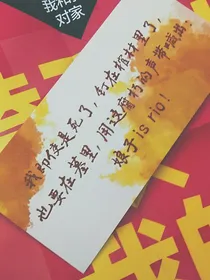 我和
对家
我即使是死了,钉在棺材里了,
也要在墓里,用这腐朽的声带喊出:
娘子is rio!